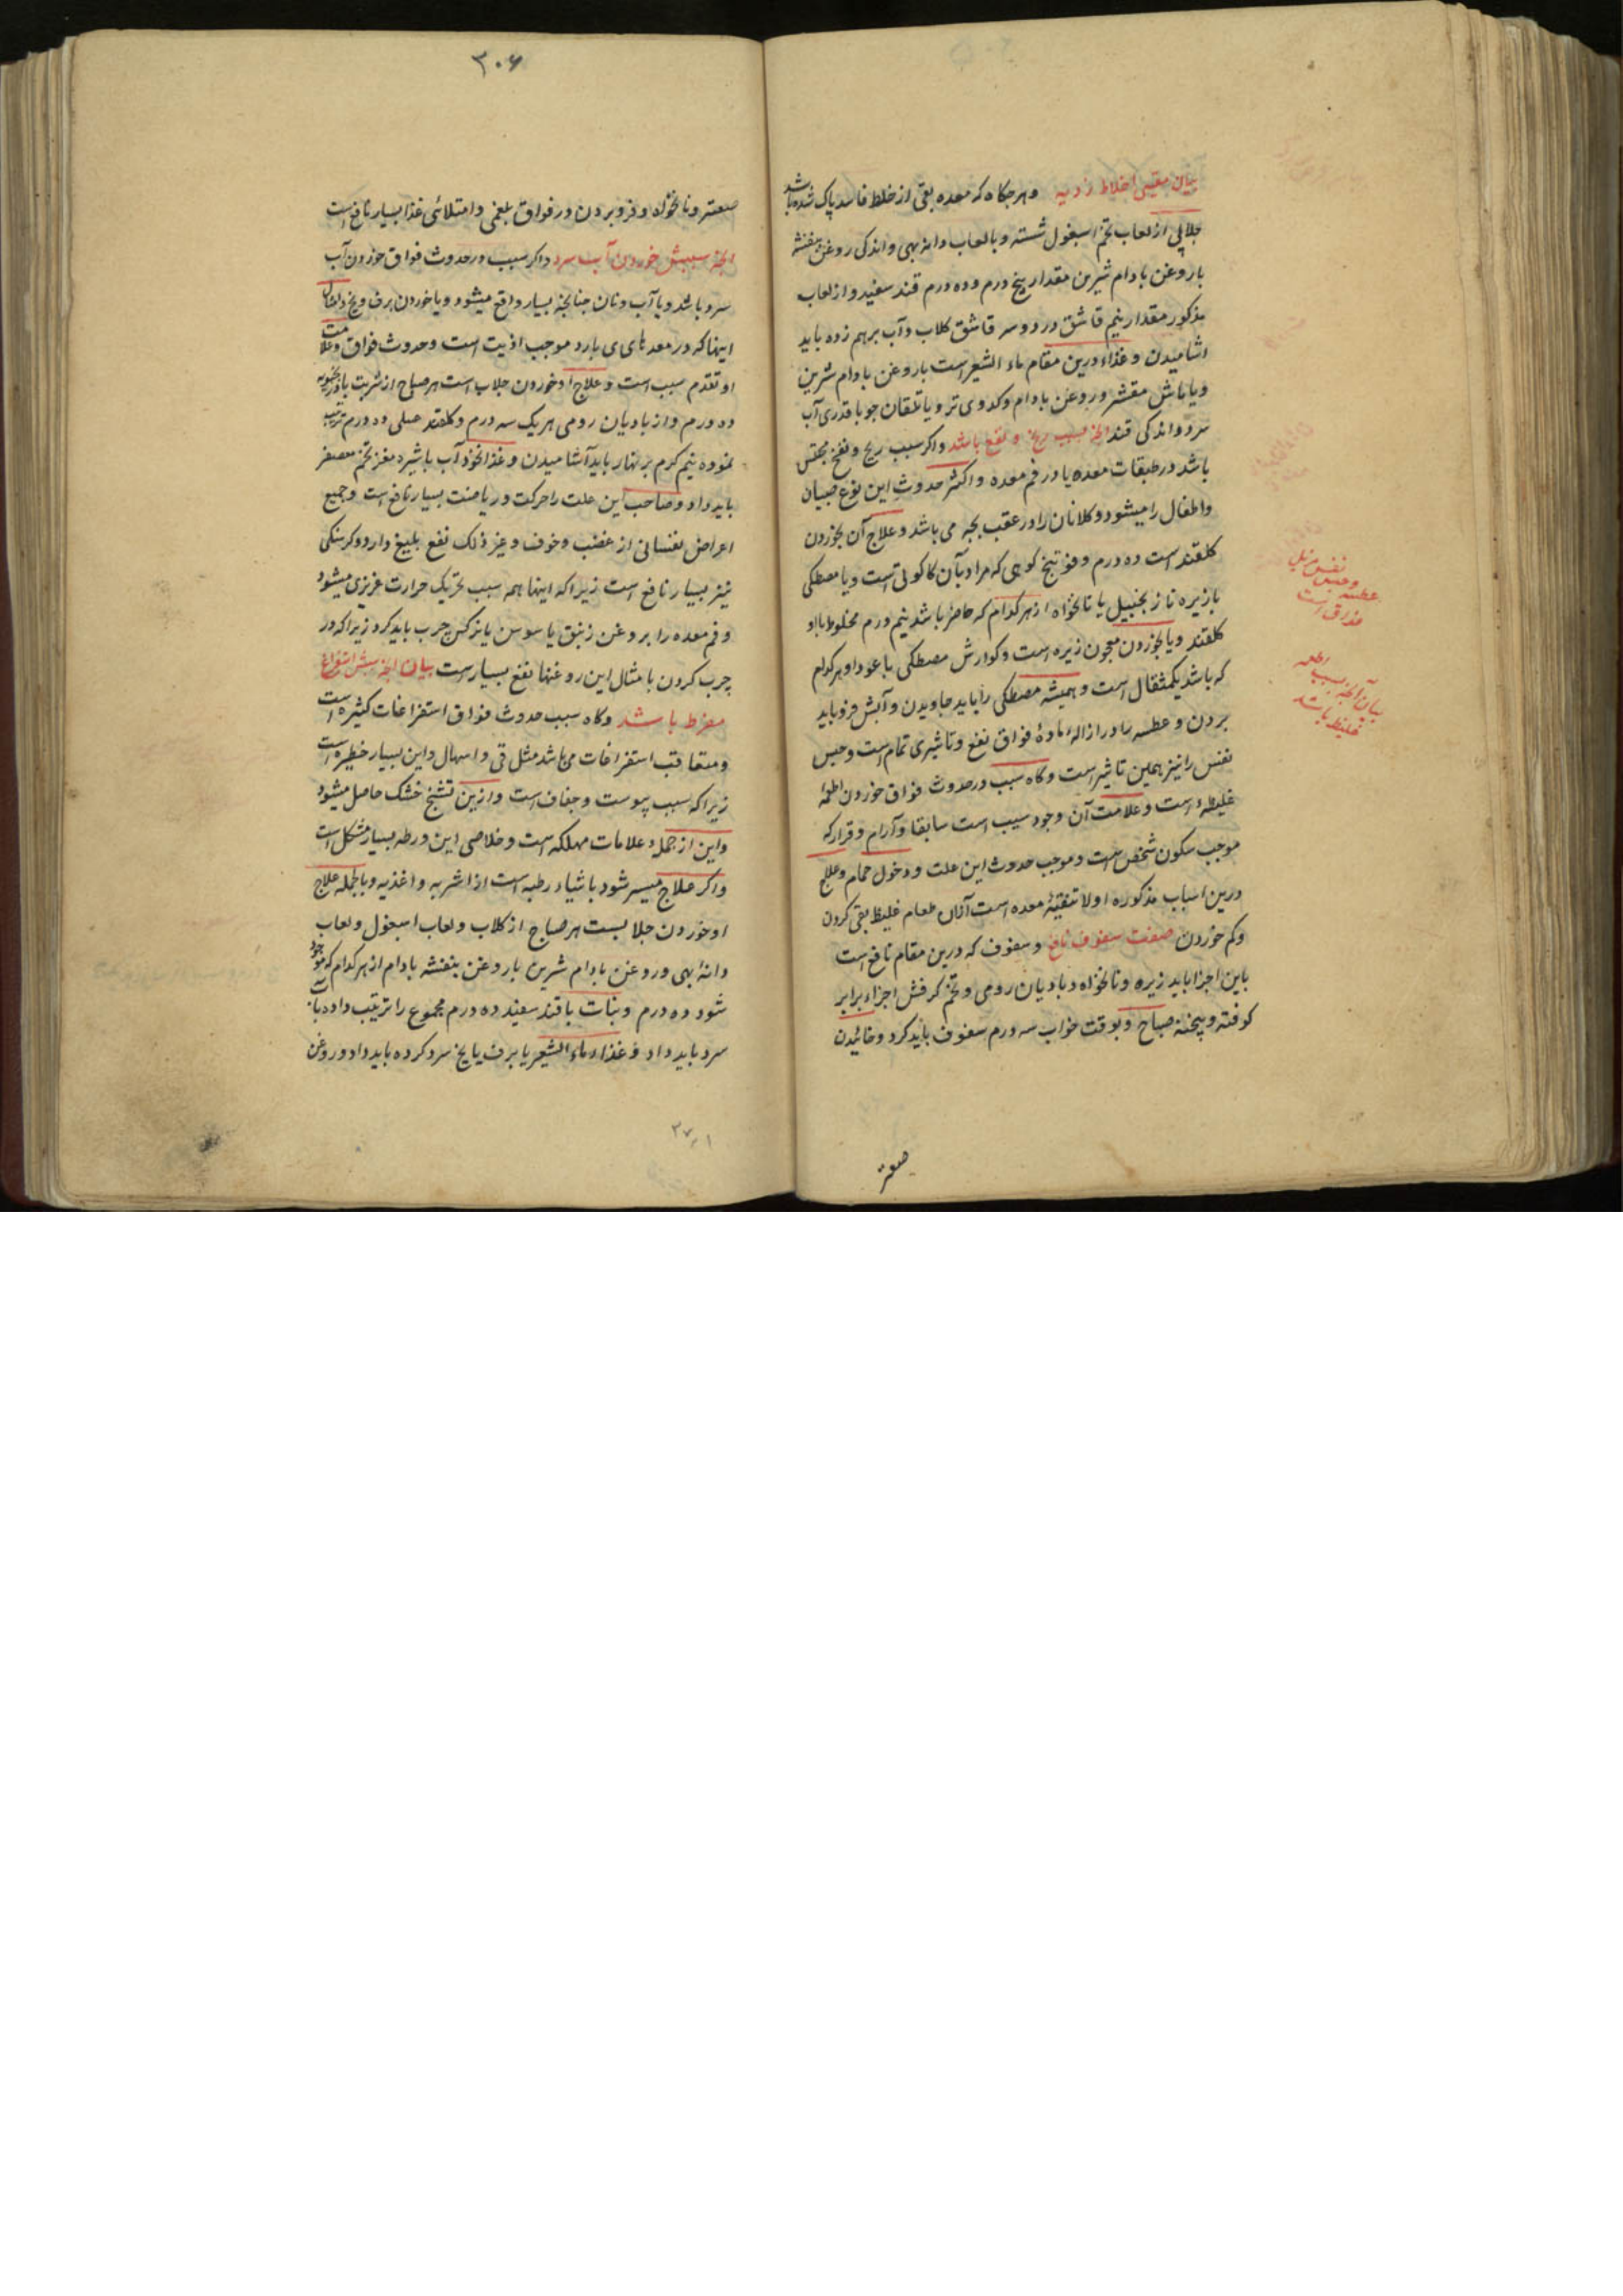 بیان مقیئ اخلاط ردیه وهرجکاه که معده بقی از خلط فاسد پاک شده باشد
جلابی از لعاب تخم اسبغول شسته وبالعاب دانه بهی واندکی روغن بنفشه
باروغن بادام شیرین مقدار پنج درم وده درم قند سفید واز لعاب
مذکور مقدار نیم قاشق در دوسه قاشق کلاب وآب برهم زده باید
اشامیدن وغذاء درین مقام ماء الشعیر است باروغن بادام شیرین
ویا ماش مقشر وروغن بادام وکدوی تر ویا تلقان جو باقدری آب
سرد واندکی قند انچه بسبب ریح ونفخ باشد واکر سبب ریح ونفخ محتقن
باشد در طبقات معده یا در فم معده واکثر حدوث این نوع صبیان
واطفال را میشود وکلانان را در عقب می باشد وعلاج آن بخوردن
کلقند است ده درم وفوتنج کوهی که مراد بآن کاکوتی است ویا مصطکی
بازیره یا زنجبیل یا نانخواه از هر کدام که حاضر باشد نیم درم مخلوط با او
کلقند ویا بخوردن معجون زیره است وکوارش مصطکی با عود او هر کدام
که باشد یکمثقال است وهمیشه مصطکی را باید جاویدن وآبش فرو باید
بردن وعطسه را در ازاله ماده فواق نفع وتاثیری تمام است وحبس
نفس را نیز همین تاثیر است وکاه سبب در حدوث فواق خوردن اطعمه
غلیظه است وعلامت آن وجود سبب است سابقا وآرام وقرار که
موجب سکون شخص است وموجب حدوث این علت ودخول حمام وعلاج
درین اسباب مذکوره اولا تنقیه معده است ازان طعام غلیظ بقی کردن
وکم خوردن صفت سفوف نافع وسفوف که درین مقام نافع است
باین اجزا باید زیره ونانخواه وبادیان رومی وتخم کرفس اجزاء برابر
کوفته وپیخته صباح وبوقت خواب سه درم سفوف باید کرد وخائیدن
صعتر
نفس مزیل
وحبس
عطسه
فواق است
بیان آنچه سبب اطعمه
غلیظ باشد
۳۰۶
صعتر ونانخواه وفرو بردن در فواق بلغمی وامتلائی غذا بسیار نافع است
انچه سببش خوردن آب سرد واکر سبب در حدوث فواق خوردن آب
سرد باشد ویا آب ونان جنانچه بسیار واقع میشود ویا خوردن برف ویخ وامثال
اینها که در معدهای بارد موجب اذیت است وحدوث فواق وعلامت
او تقدم سبب است وعلاج او خوردن جلاب است هر صباح از شربت بادرنجبویه
ده درم واز بادیان رومی هر یک سه درم وکلقند عسلی ده درم ترتیب
نموده نیم کرم بر نهار باید آشامیدن وغذا نخود آب باشیره مغز تخم معصفر
باید داد وصاحب این علت را حرکت وریاضت بسیار نافع است وجمیع
اعراض نفسانی از غضب وخوف وغیر ذلک نفع بلیغ دارد وکرسنکی
نیز بسیار نافع است زیرا که اینها همه سبب تحریک حرارت غریزی میشود
وفم معده را بروغن زنبق یا سوسن یا نرکس چرب باید کرد زیرا که در
چرب کردن بامثال این روغنها نفع بسیار است بیان انچه سببش استفراغ
مفرط باشد وکاه سبب حدوث فواق استفراغات کثیره است
ومتعاقب استفراغات می باشد مثل قی واسهال واین بسیار خطیره است
زیرا که سبب یبوست وجفاف است وازین تشنج خشک حاصل میشود
واین از جمله علامات مهلکه است وخلاصی این ورطه بسیار مشکل است
واکر علاج میسر شود باشیاء رطبه است از اشربه واغذیه وبالجمله علاج
او خوردن جلابست هر صباح از کلاب ولعاب اسبغول ولعاب
دانه بهی وروغن بادام شیرین یا روغن بنفشه بادام از هر کدام که موجود
شود ده درم ونبات یا قند سفید ده درم مجموع را ترتیب داده بآب
سرد باید داد وغذاء ماء الشعیر یا برف یا یخ سرد کرده باید داد وروغن